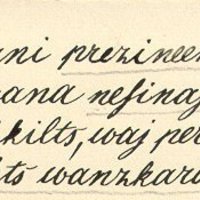 ni prezineen
ana nesinaj
kilts, waj per
ts wanzkar